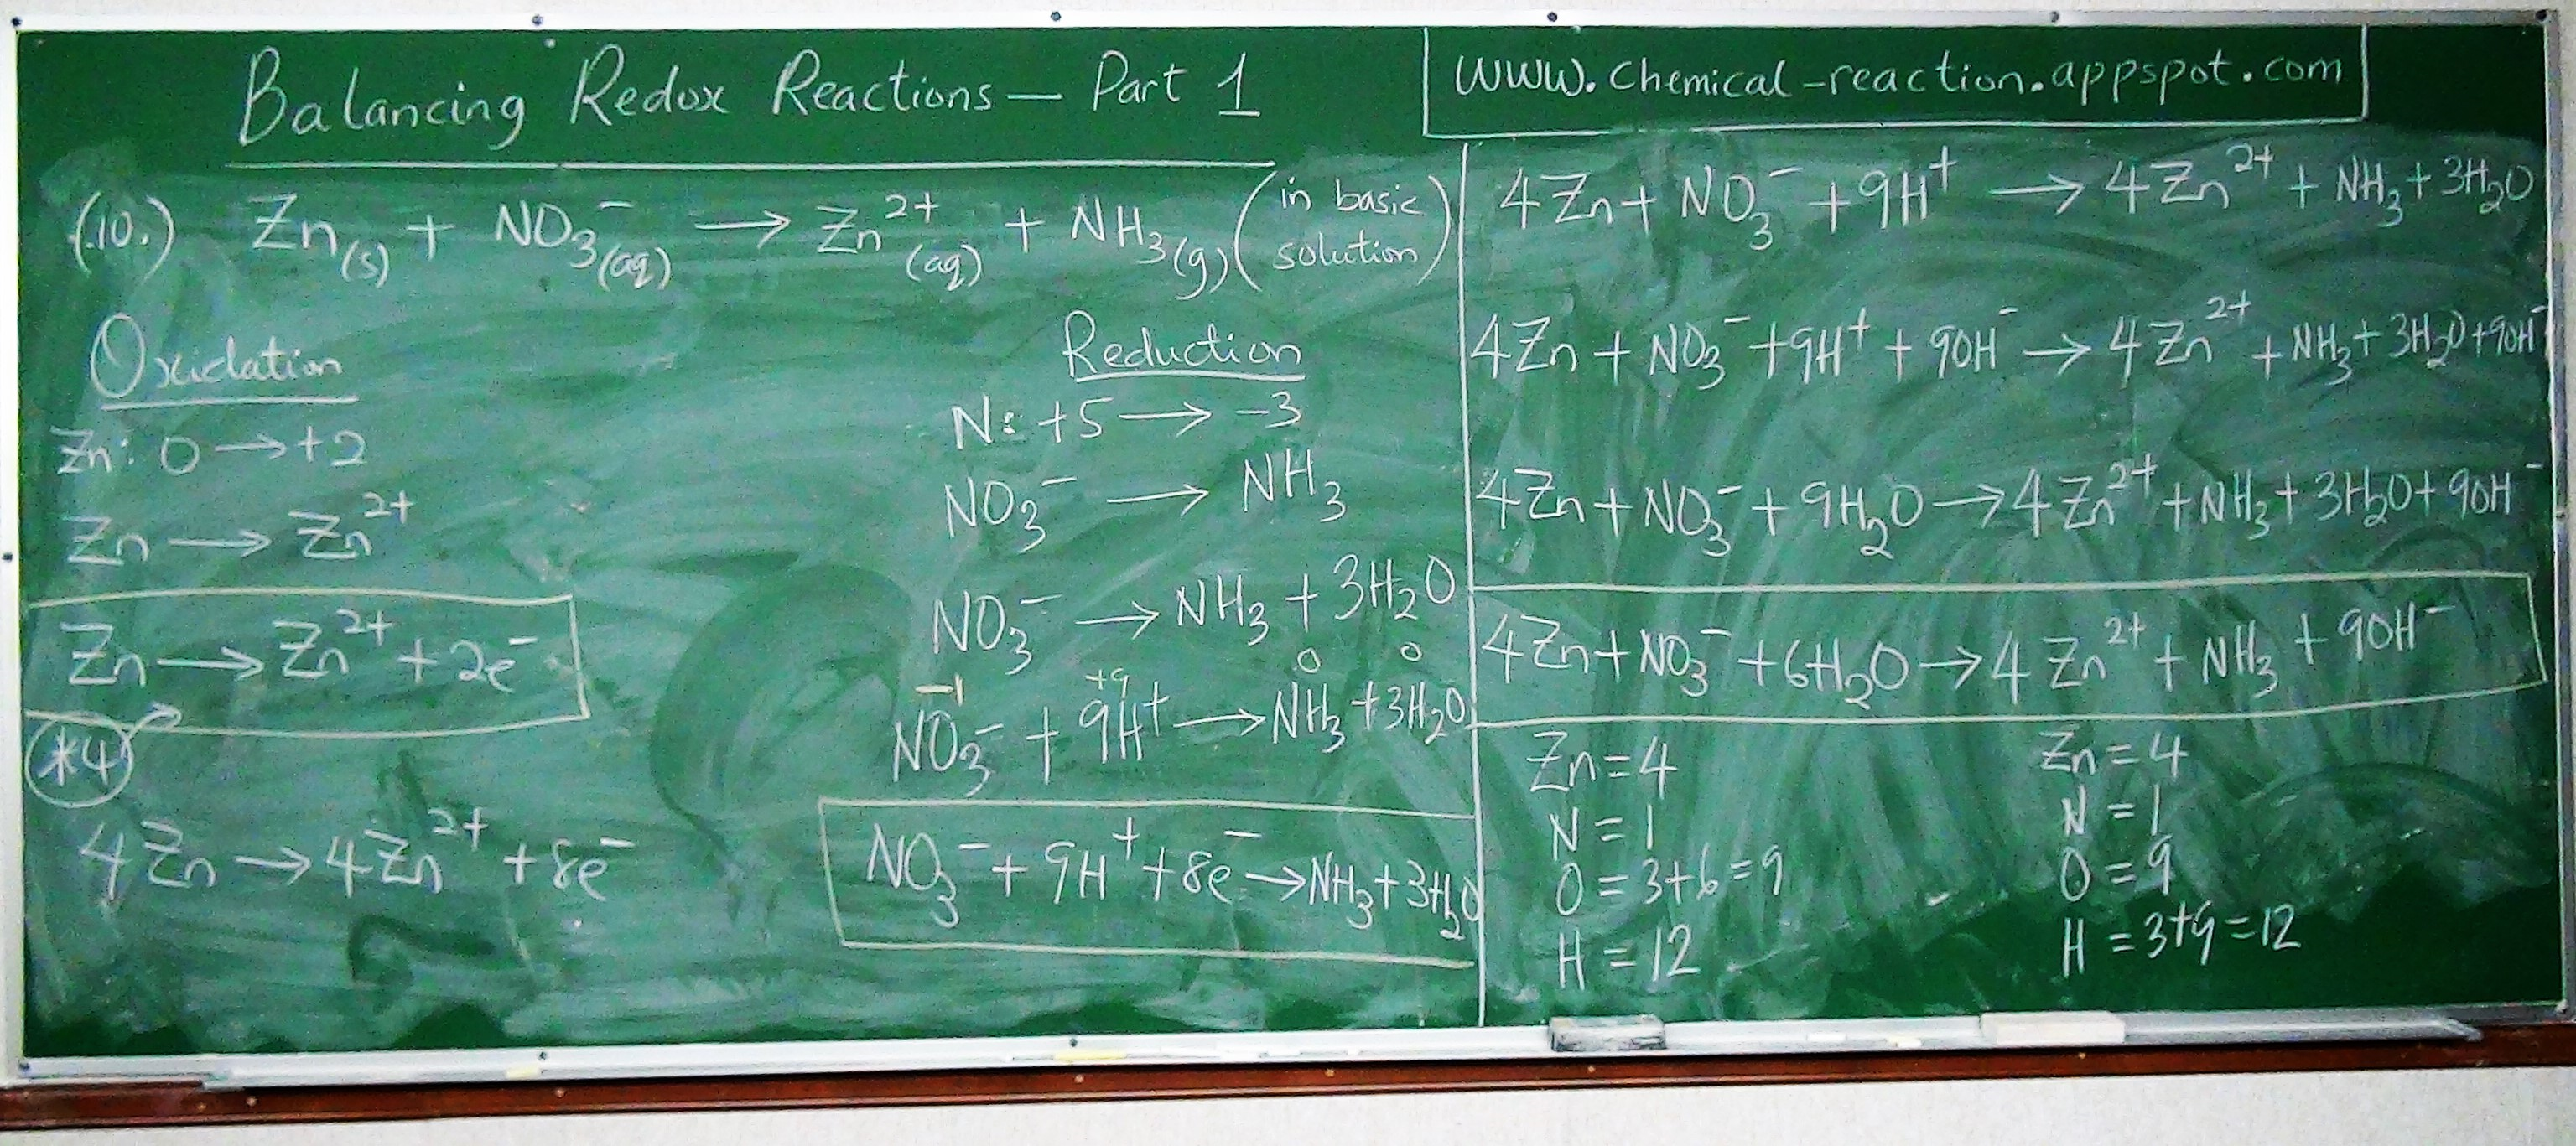 Balancing Redox Reactions – Part 1
www.chemical-reaction.appspot.com
(10.) Zn(s) + NO₃⁻(aq) → Zn²⁺(aq) + NH₃(g) (in basic solution)
Oxidation
Zn: 0 → +2
Zn → Zn²⁺
Zn → Zn²⁺ + 2e⁻
*4
4Zn → 4Zn²⁺ + 8e⁻
Reduction
N: +5 → -3
NO₃⁻ → NH₃
NO₃⁻ → NH₃ + 3H₂O
-1 +9 0 0
NO₃⁻ + 9H⁺ → NH₃ + 3H₂O
NO₃⁻ + 9H⁺ + 8e⁻ → NH₃ + 3H₂O
4Zn + NO₃⁻ + 9H⁺ → 4Zn²⁺ + NH₃ + 3H₂O
4Zn + NO₃⁻ + 9H⁺ + 9OH⁻ → 4Zn²⁺ + NH₃ + 3H₂O + 9OH⁻
4Zn + NO₃⁻ + 9H₂O → 4Zn²⁺ + NH₃ + 3H₂O + 9OH⁻
4Zn + NO₃⁻ + 6H₂O → 4Zn²⁺ + NH₃ + 9OH⁻
Zn = 4 Zn = 4
N = 1 N = 1
O = 3+6 = 9 O = 9
H = 12 H = 3+9 = 12